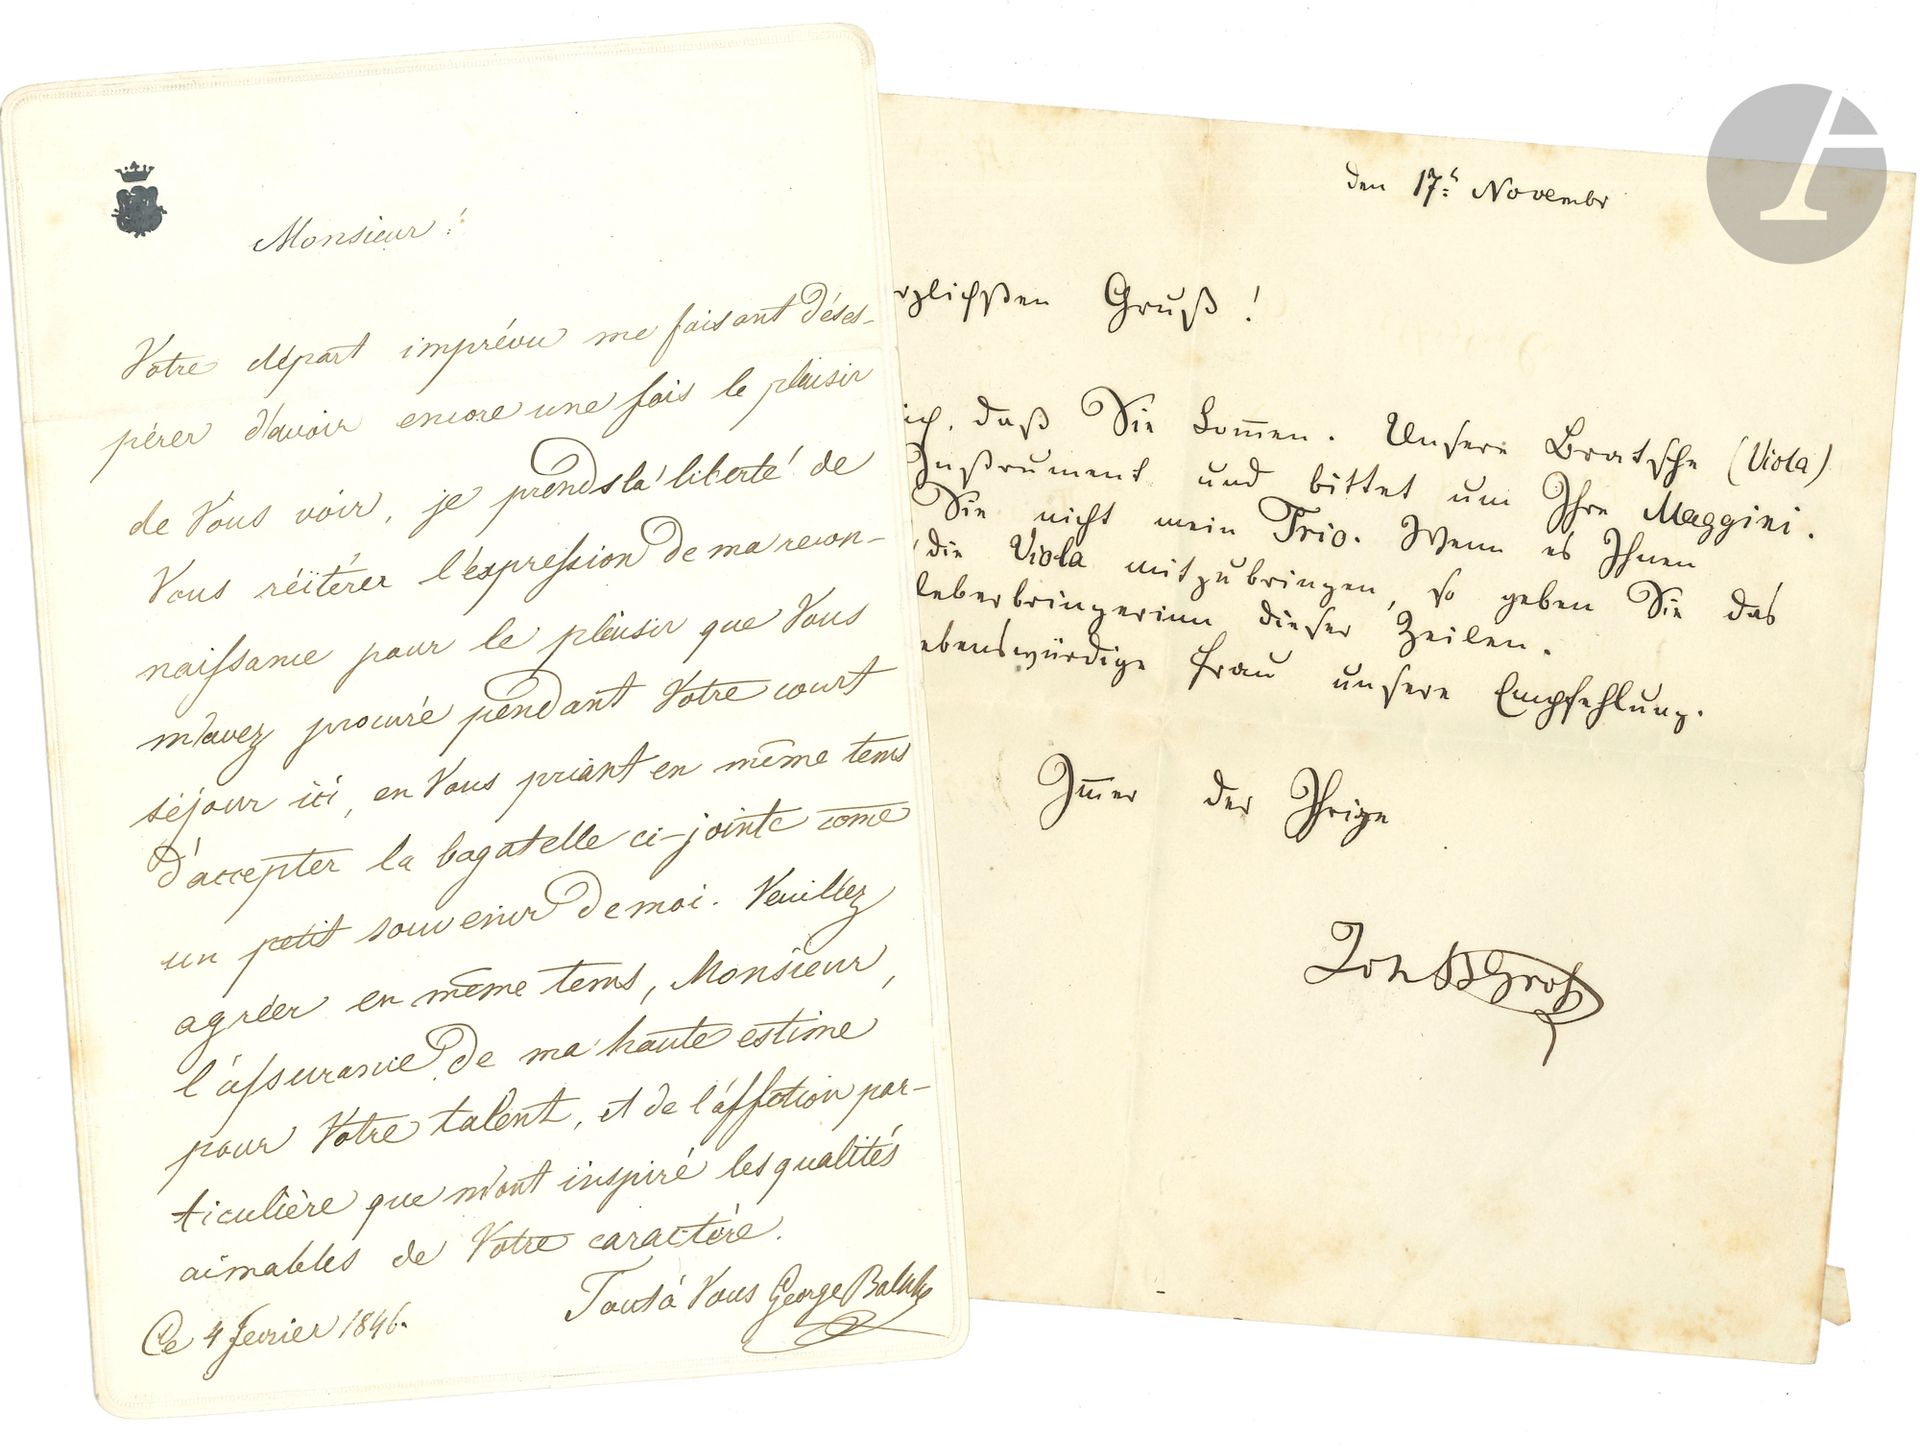 Monsieur!
Votre départ imprévu me faisant déses-
pérer d'avoir encore une fois le plaisir
de Vous voir, je prends la liberté de
Vous réïtérer l'expression de ma recon-
naissance pour le plaisir que Vous
m'avez procuré pendant Votre court
séjour ici, en Vous priant en même tems
d'accepter la bagatelle ci-jointe come
un petit souvenir de moi. Veuillez
agréer en même tems, Monsieur,
l'assurance de ma haute estime
pour Votre talent, et de l'affection par-
ticulière que m'ont inspiré les qualités
aimables de Votre caractère.
Tout à Vous George
Ce 4 fevrier 1846.
den 17t Novembr
rzlichsten Gruß!
ich, daß Sie kom̅en. Unsere Bratsche (Viola)
Instrument und bittet um Ihre Maggini.
Sie nicht mein Trio. Wenn es Ihnen
die Viola mitzubringen, so geben Sie das
Ueberbringerinn dieser Zeilen.
ebenswürdige Frau unsere Empfehlung.
Im̅er der Ihrige
Joh B Groß